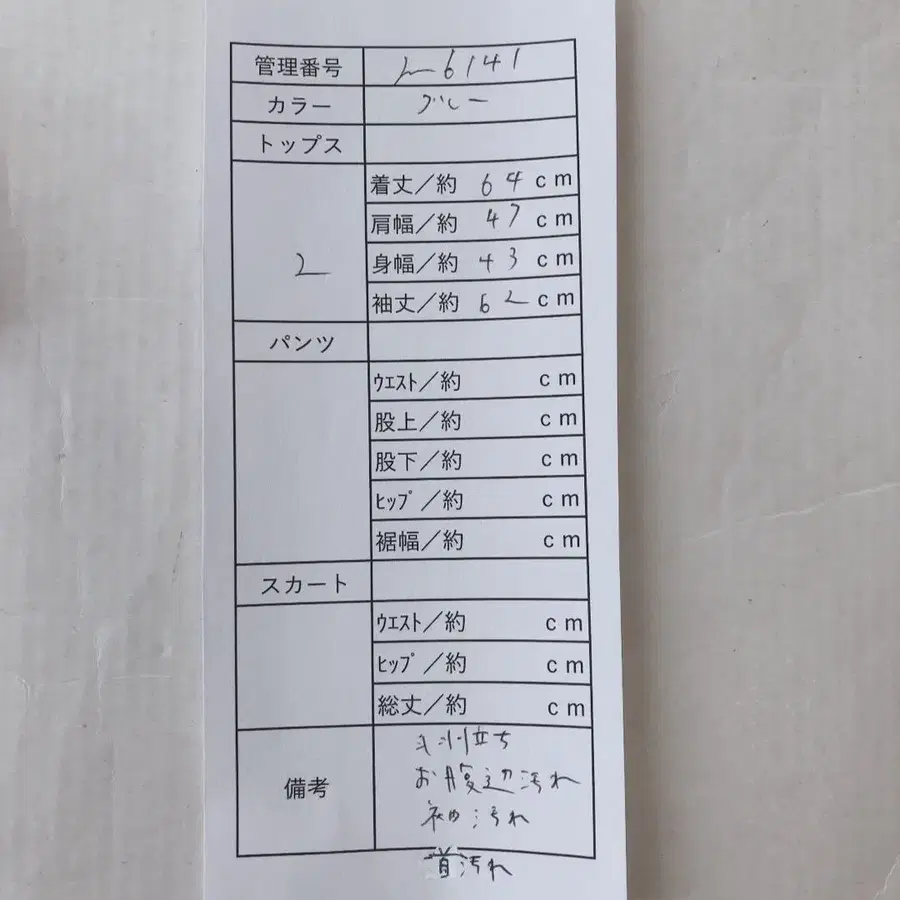 管理番号 6141
カラー グレー
トップス
2
着丈／約 64 cm
肩幅／約 47 cm
身幅／約 43 cm
袖丈／約 62 cm
パンツ
ウエスト／約 cm
股上／約 cm
股下／約 cm
ヒップ／約 cm
裾幅／約 cm
スカート
ウエスト／約 cm
ヒップ／約 cm
総丈／約 cm
備考
毛羽立ち
お腹辺汚れ
袖汚れ
首汚れ